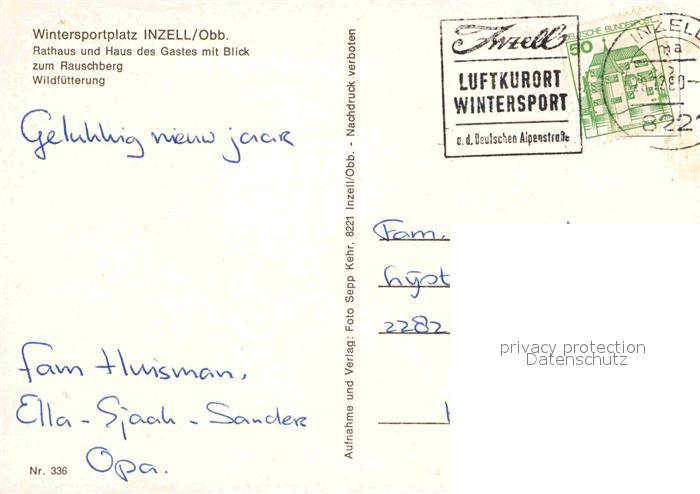 Wintersportplatz INZELL/Obb.
Rathaus und Haus des Gastes mit Blick
zum Rauschberg
Wildfütterung
Gelukkig nieuw jaar
Fam Huisman,
Ella - Sjaak - Sander
Opa.
Nr. 336
Aufnahme und Verlag: Foto Sepp Kehr, 8221 Inzell/Obb. - Nachdruck verboten
Inzell
LUFTKURORT
WINTERSPORT
a.d. Deutschen Alpenstraße
DEUTSCHE BUNDESPOST
50
INZELL
ma
822
Fam.
2282
privacy protection
Datenschutz